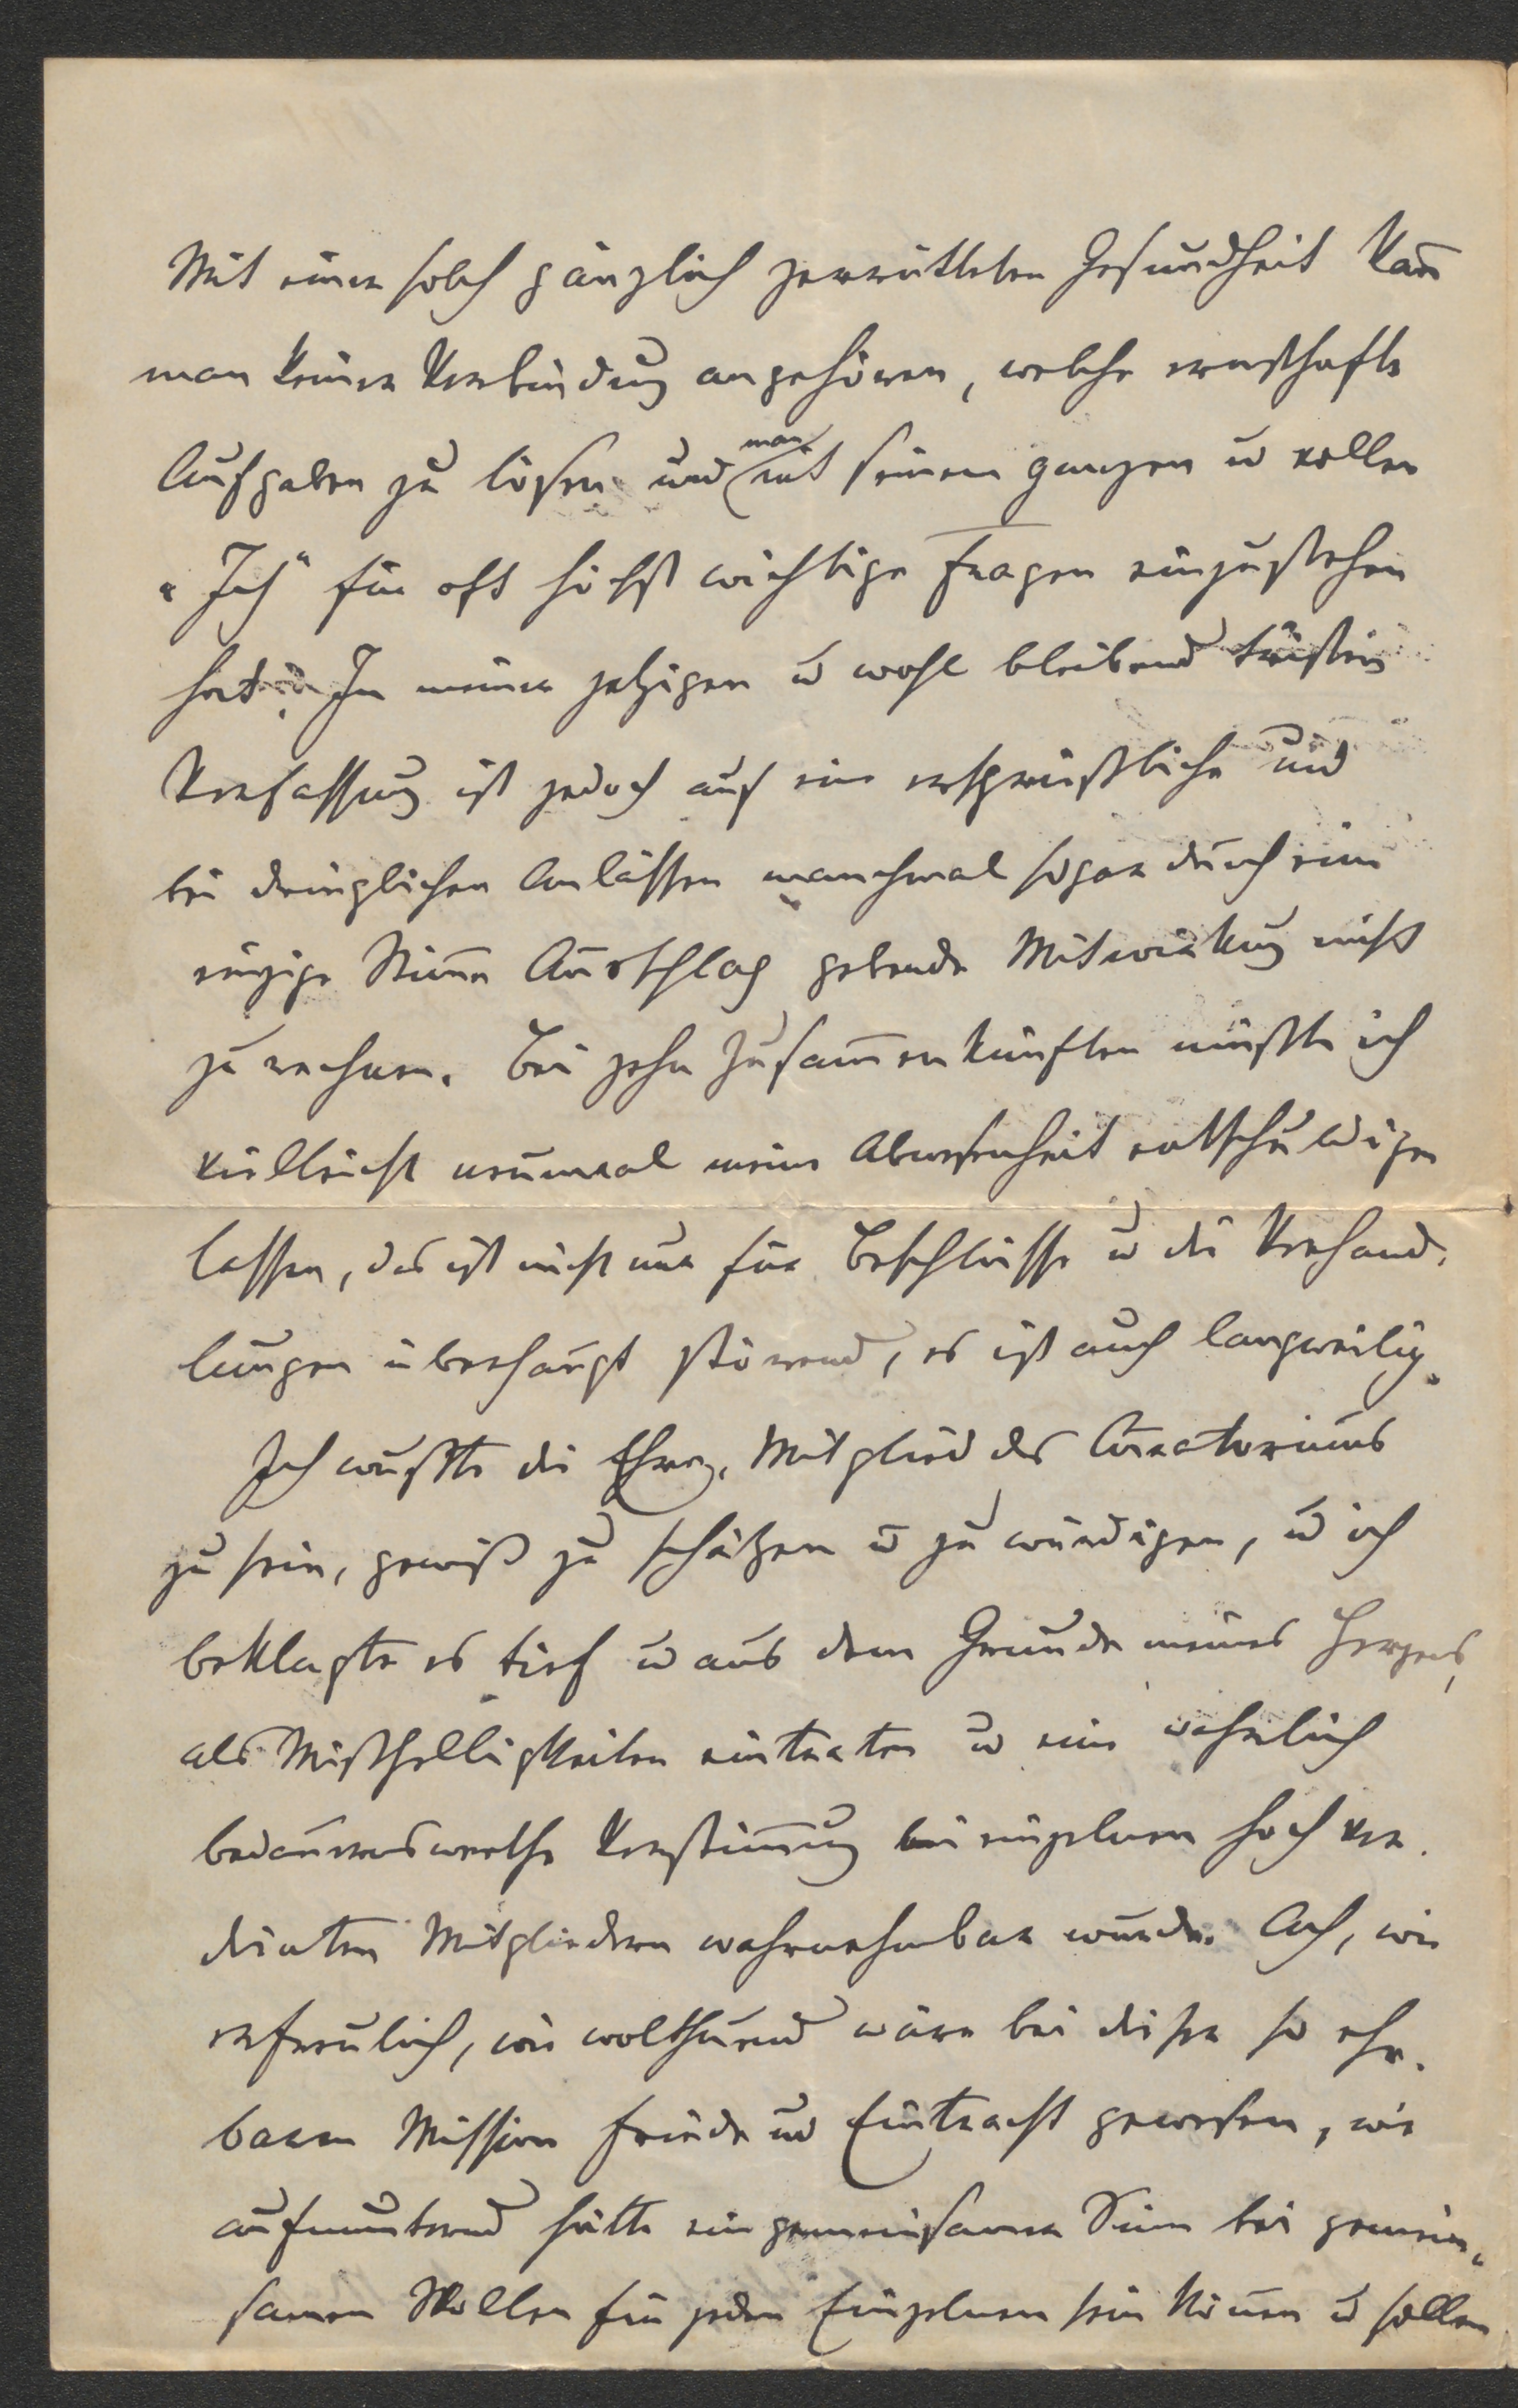 Mit einer solch gänzlich zerrütteten Gesundheit kan̄
man keiner Verbindung angehören, welche ernsthafte
Aufgaben zu lösen und man mit seinem ganzen u vollen
„Ich“ für oft höchst wichtige Fragen einzustehen
hat. In meiner jetzigen u wohl bleibend tristen
Verfassung ist jedoch auf eine ersprießliche und
bei dringlichen Anlässen manchmal sogar durch eine
einzige Stim̄e Ausschlag gebende Mitwirkung nicht
zu rechnen. Bei zehn Zusam̄enkünften müßte ich
vielleicht neunmal meine Abwesenheit entschuldigen
lassen, das ist nicht nur für Beschlüsse u die Verhand-
lungen überhaupt störend, es ist auch langweilig.
Ich wußte die Ehre, Mitglied des Curatoriums
zu sein, gewiß zu schätzen u zu würdigen, u ich
beklagte es tief u aus dem Grunde meines Herzens,
als Mißhelligkeiten eintraten u eine wahrlich
bedauernswerthe Verstim̄ung bei einzelnen hoch ver-
dienten Mitgliedern wahrnehmbar wurde. Ach, wie
erfreulich, wie wolthuend wäre bei dieser so ehr-
baren Mission Friede und Eintracht gewesen, wie
aufmunternd hätte ein gemeinsamer Sinn bei gemein-
samen Wollen für jeden Einzelnen sein kön̄en u sollen